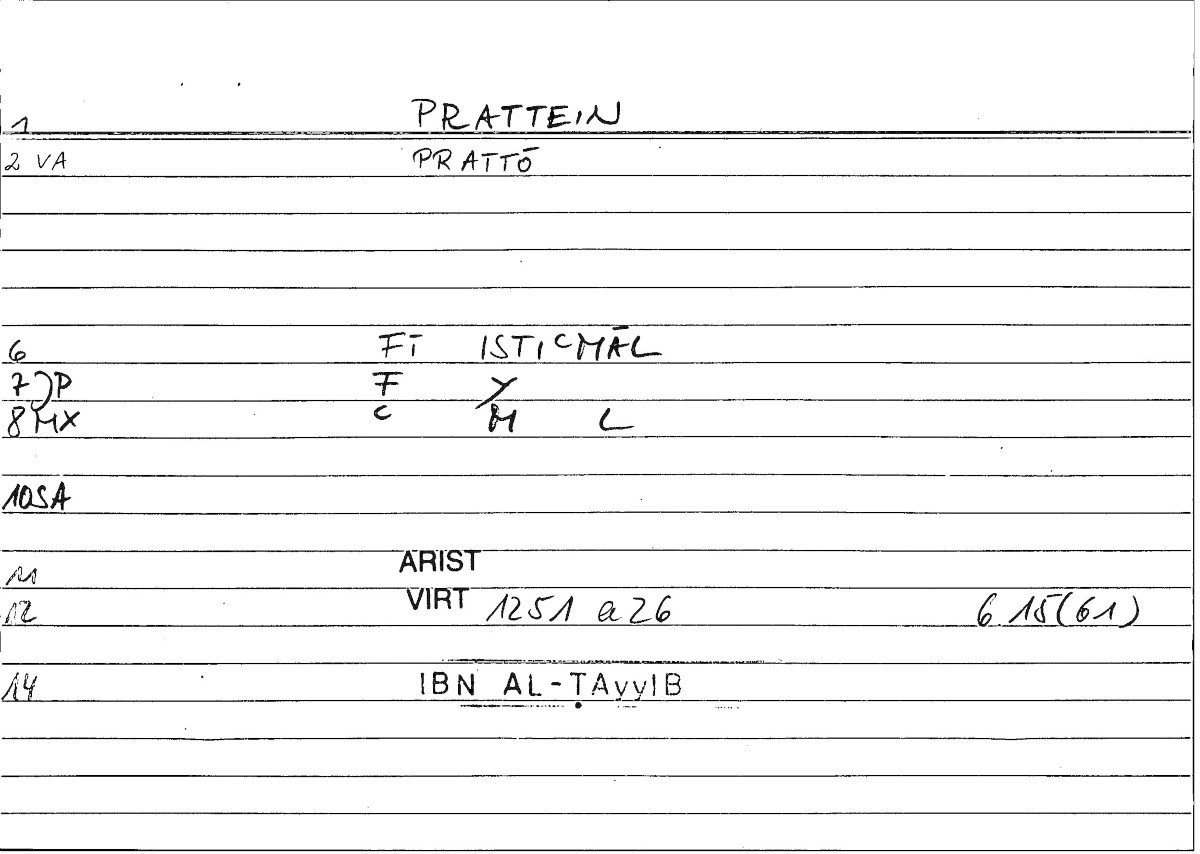 1 PRATTEIN
2 VA PRATTŌ
6 FĪ ISTICMĀL
7 JP F Y
8 MX C M L
10SA
11 ARIST
12 VIRT 1251 a 26 6 15(61)
14 IBN AL-ṬAyyIB